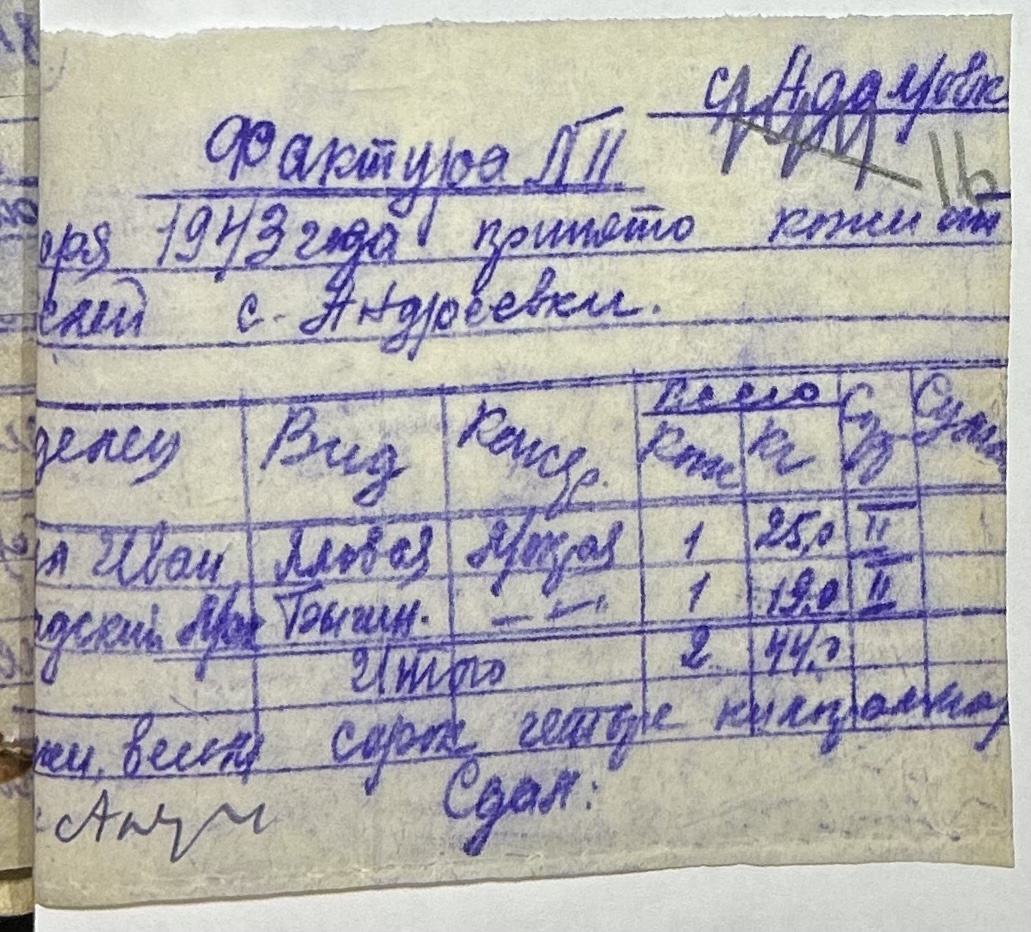 с. Адамовк
16
Фактура №11
бря 1943 года принято кожи от
елей с. Андреевки.
делец Вид Консер. Всего Сорт Сумма
Кож Кг
л Иван Яловая Ярка 1 25,0 II
дский Бычин. — " — 1 19,0 II
Итого 2 44,0
жи, весом сорок четыре килограмма
Сдал: